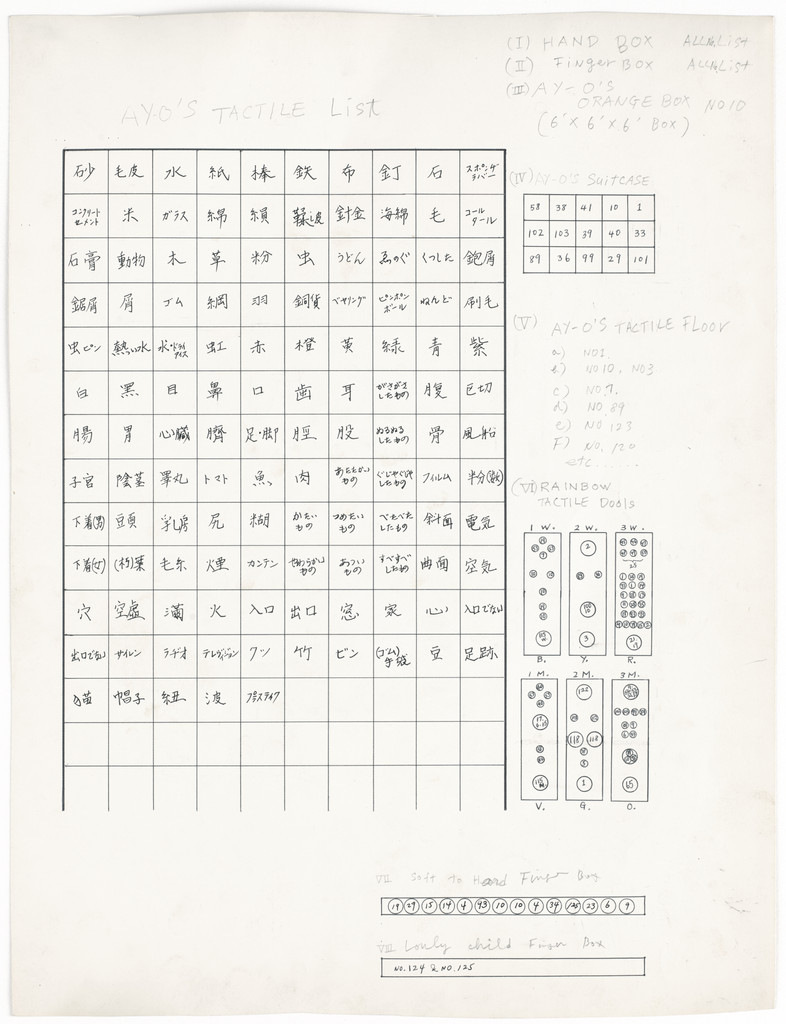 (I) HAND BOX ALL No. List
(II) Finger BOX ALL No. List
(III) AY-O'S
ORANGE BOX NO10
(6' x 6' x 6' BOX)
AY-O'S TACTILE List
砂 毛皮 水 紙 棒 鉄 布 釘 石 スポンヂラバー
コンクリートセメント 米 ガラス 綿 針金 海綿 毛 コールタール
石膏 動物 木 草 粉 虫 うどん ゑのぐ くつした 鉋屑
鋸屑 屑 ゴム 綱 羽 銅貨 ベヤリング ピンポンボール ねんど 刷毛
虫ピン 熱い水 氷・ドライアイス 虹 赤 橙 黄 緑 青 紫
白 黒 目 鼻 口 歯 耳 がさがさしたもの 腹 巳切
腸 胃 心臓 臍 足・脚 脛 股 ぬるぬるしたもの 骨 風船
子宮 陰茎 睾丸 トマト 魚 肉 あたたかいもの ぐじゃぐじゃしたもの フィルム 半分(数)
下着(男) 豆頁 乳房 尻 糊 かたいもの つめたいもの べたべたしたもの 斜面 電気
下着(女) (朽)葉 毛糸 煙 カンテン やわらかいもの あついもの すべすべしたもの 曲面 空気
穴 空虚 満 火 入口 出口 窓 家 心 入口でない
出口でない サイレン ラヂオ テレヴィジョン クツ 竹 ビン (ゴム)手袋 豆 足跡
猫 帽子 紐 波 プラスティック
(IV) AY-O'S SUITCASE
58 38 41 10 1
102 103 39 40 33
89 36 99 29 101
(V) AY-O'S TACTILE FLOOR
a) NO1.
b) NO10, NO3
c) NO.7.
d) NO.89
e) NO 123
F) NO. 120
etc.....
(VI) RAINBOW
TACTILE Dools
1 W. 2 W. 3 W.
B. Y. R.
1 M. 2 M. 3 M.
V. G. O.
VII Soft to Hard Finger Box
19 29 15 14 4 43 10 10 4 34 125 23 6 9
VIII Lonly child Finger Box
NO.124 & NO.125